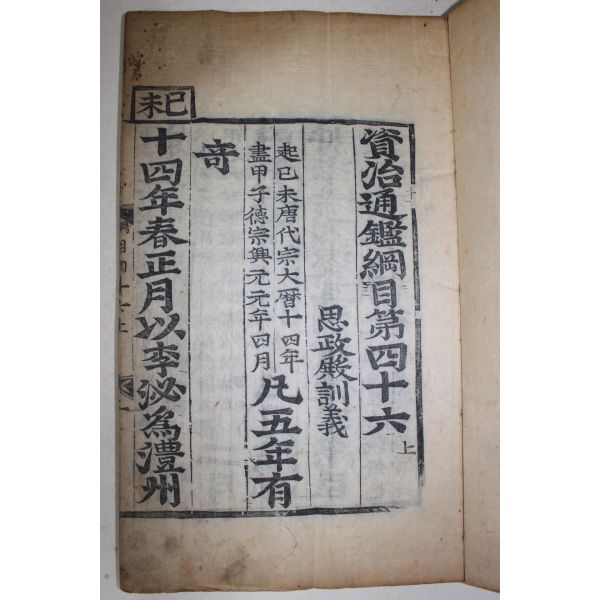 資治通鑑綱目第四十六上
思政殿訓義
起己未唐代宗大曆十四年
盡甲子德宗興元元年四月
凡五年有
竒
己未
十四年春正月以李泌為澧州